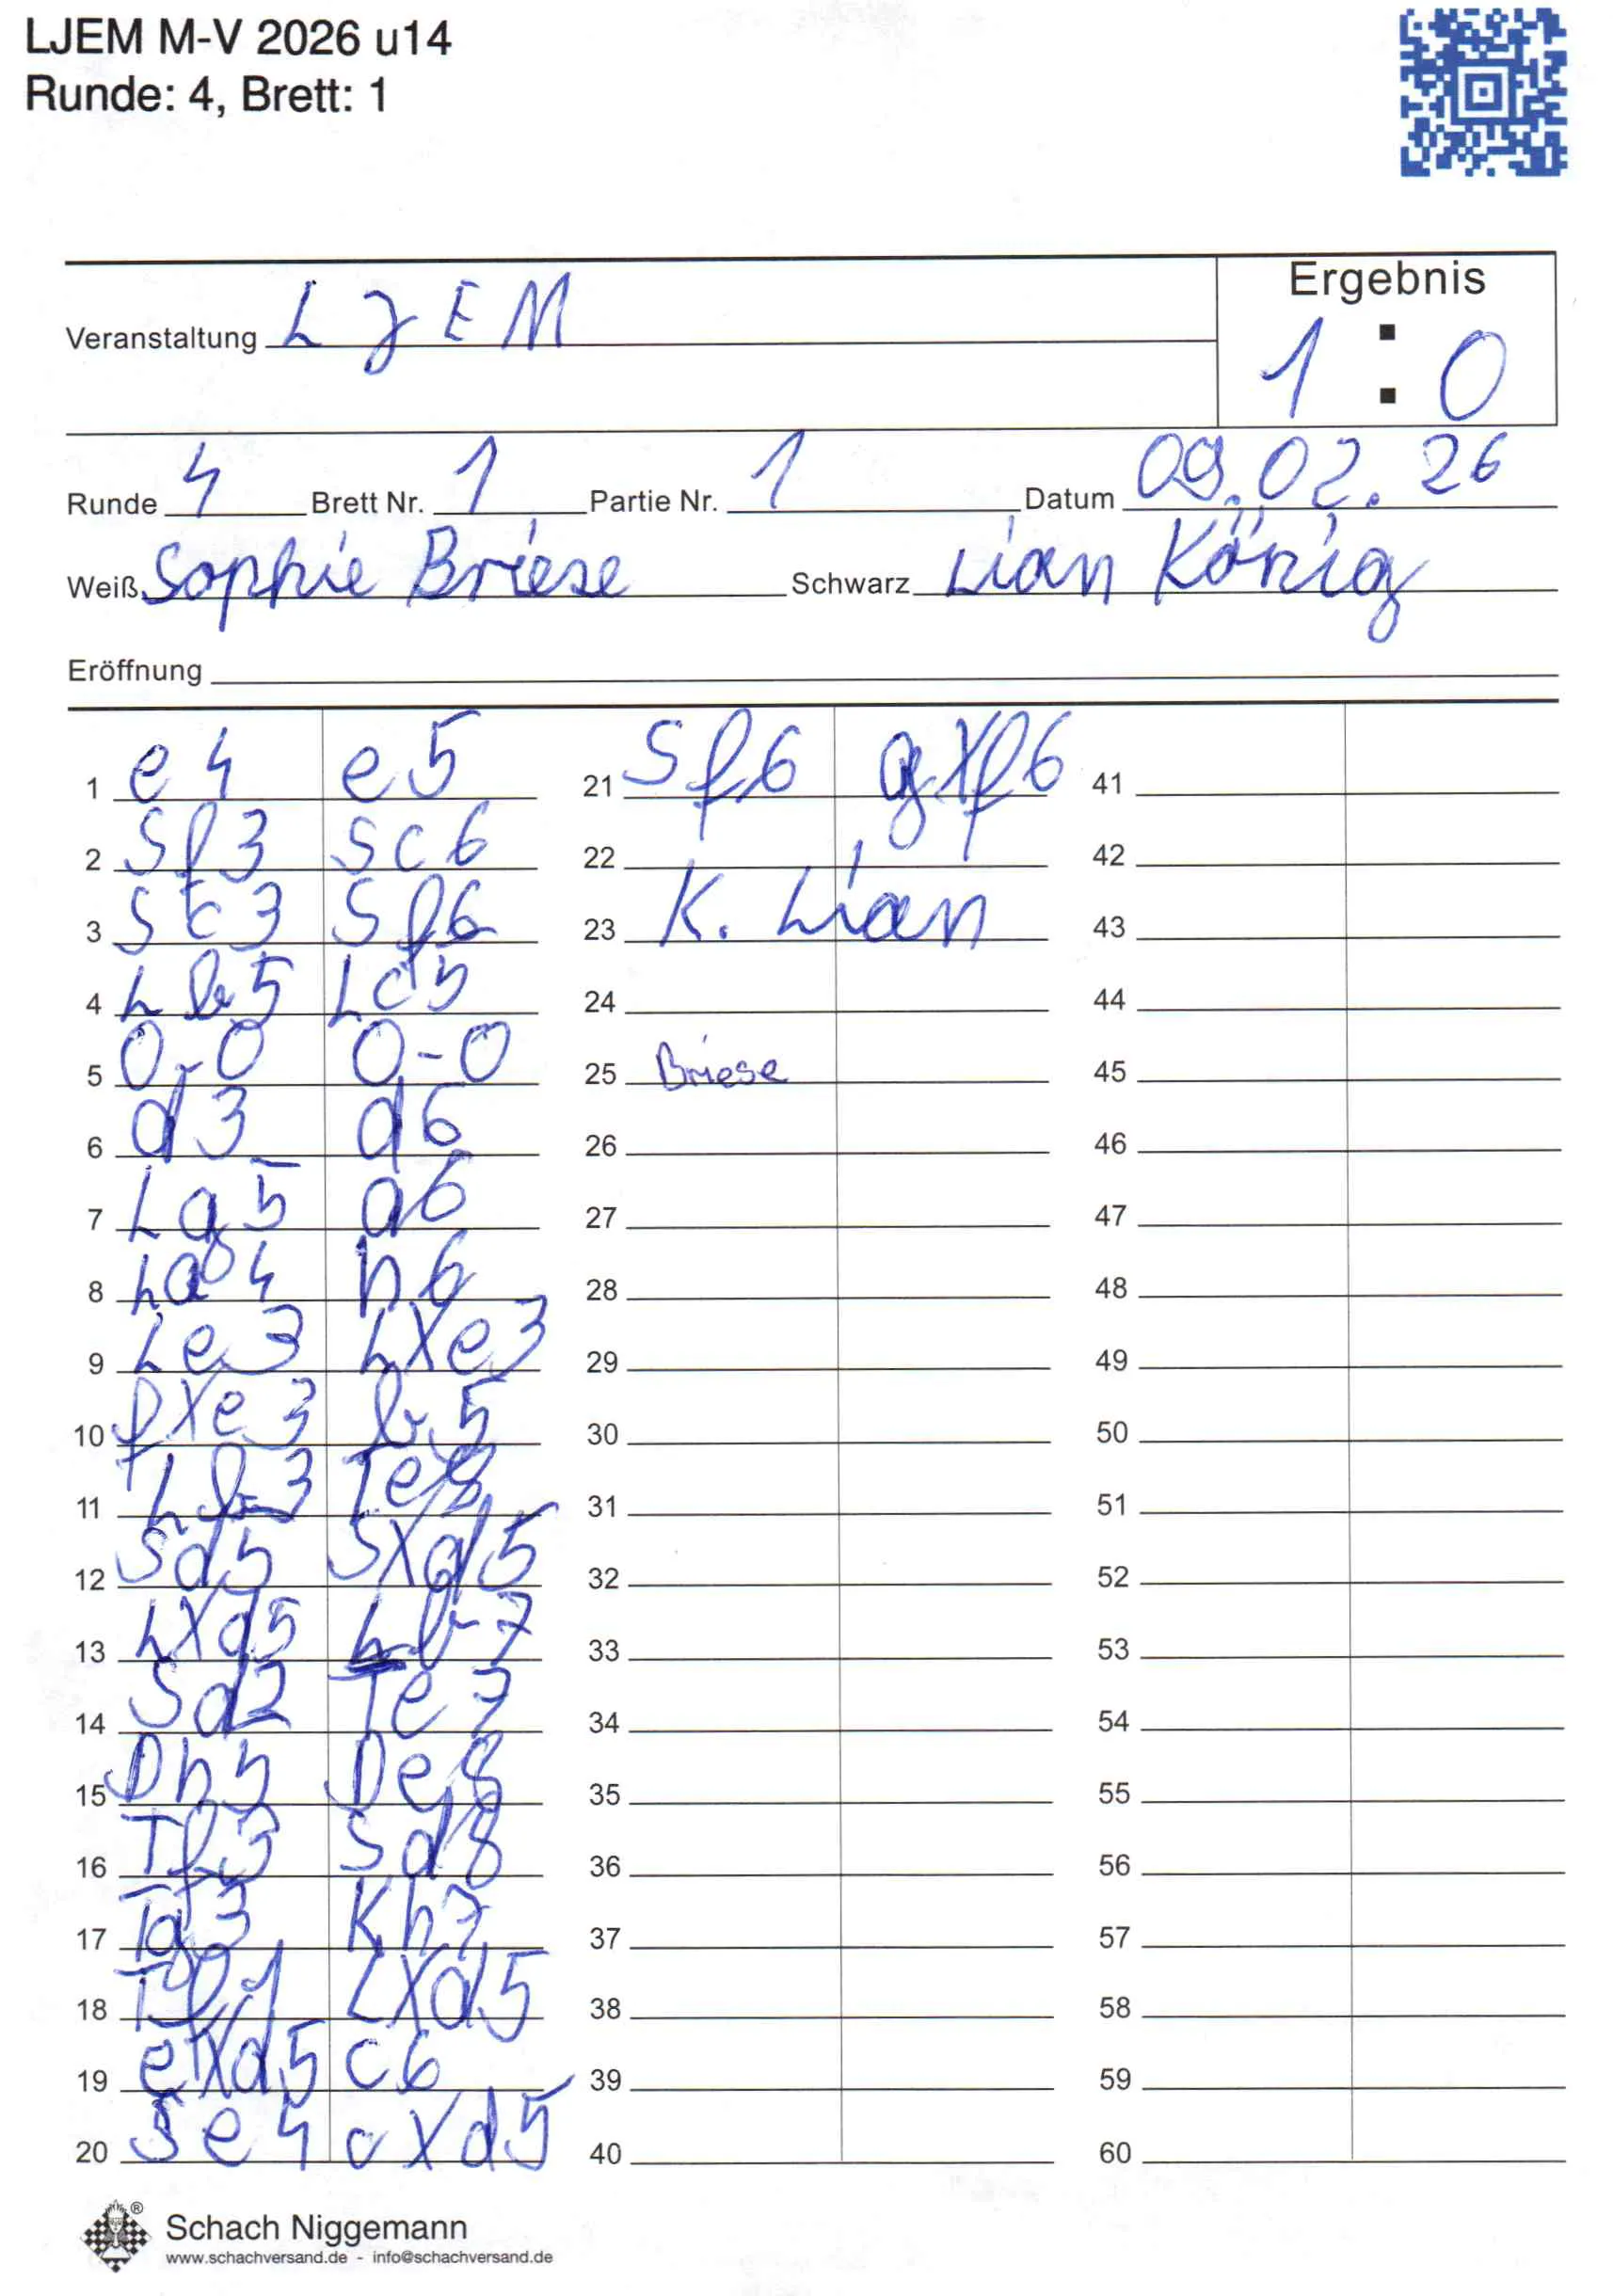 LJEM M-V 2026 u14
Runde: 4, Brett: 1
Ergebnis
Veranstaltung LJEM
1 : 0
Runde 4 Brett Nr. 1 Partie Nr. 1 Datum 09.02.26
Weiß Sophie Briese Schwarz Lian König
Eröffnung
1 e4 e5
2 Sf3 Sc6
3 Sc3 Sf6
4 Lb5 Lc5
5 0-0 0-0
6 d3 d6
7 Lg5 a6
8 La4 h6
9 Le3 LXe3
10 fXe3 b5
11 Lb3 Te8
12 Sd5 SXd5
13 LXd5 Lb7
14 Sd2 Te7
15 Dh5 De8
16 Tf3 Sd8
17 Tg3 Kh7
18 Tf1 LXd5
19 eXd5 c6
20 Se4 cXd5
21 Sf6 gXf6
22
23 K. Lian
24
25 Briese
26
27
28
29
30
31
32
33
34
35
36
37
38
39
40
41
42
43
44
45
46
47
48
49
50
51
52
53
54
55
56
57
58
59
60
®
Schach Niggemann
www.schachversand.de - info@schachversand.de